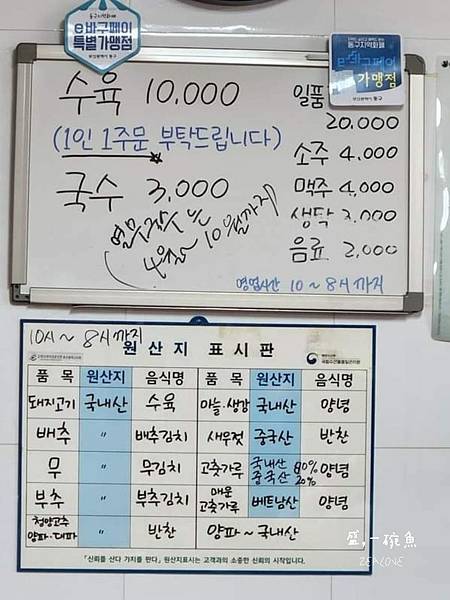 동구지역화폐
e바구페이
특별가맹점
부산광역시 동구
동구지역화폐
e바구페이
가맹점
부산광역시 동구
수육 10,000
(1인 1주문 부탁드립니다)
국수 3,000
(열무국수는
4월~10월까지)
일품
20,000
소주 4,000
맥주 4,000
생탁 3,000
음료 2,000
영업시간 10~8시까지
10시~8시까지
원산지 표시판
품목 원산지 음식명 품목 원산지 음식명
돼지고기 국내산 수육 마늘·생강 국내산 양념
배추 〃 배추김치 새우젓 중국산 반찬
무 〃 무김치 고춧가루 국내산 80% 중국산 20% 양념
부추 〃 부추김치 매운 고춧가루 베트남산 양념
청양고추 양파·대파 〃 반찬 양파~국내산
「신뢰를 산다 가치를 판다」 원산지표시는 고객과의 소중한 신뢰의 시작입니다.
盛,一碗魚
ZEALONE